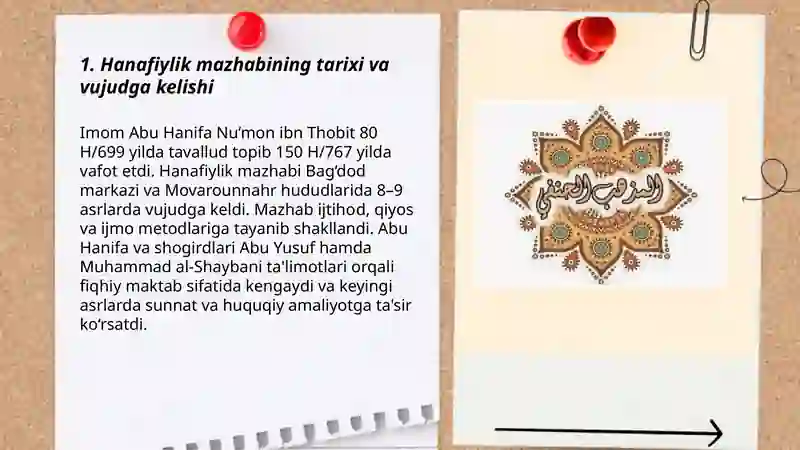 1. Hanafiylik mazhabining tarixi va
vujudga kelishi
Imom Abu Hanifa Nu’mon ibn Thobit 80
H/699 yilda tavallud topib 150 H/767 yilda
vafot etdi. Hanafiylik mazhabi Bag‘dod
markazi va Movarounnahr hududlarida 8–9
asrlarda vujudga keldi. Mazhab ijtihod, qiyos
va ijmo metodlariga tayanib shakllandi. Abu
Hanifa va shogirdlari Abu Yusuf hamda
Muhammad al-Shaybani ta'limotlari orqali
fiqhiy maktab sifatida kengaydi va keyingi
asrlarda sunnat va huquqiy amaliyotga ta'sir
ko‘rsatdi.
المذهب الحنفي